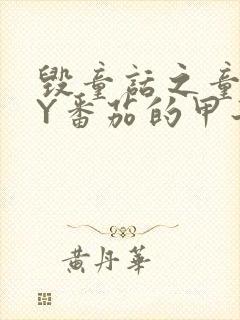 毁童话之童
Y番茄的甲
黄丹华